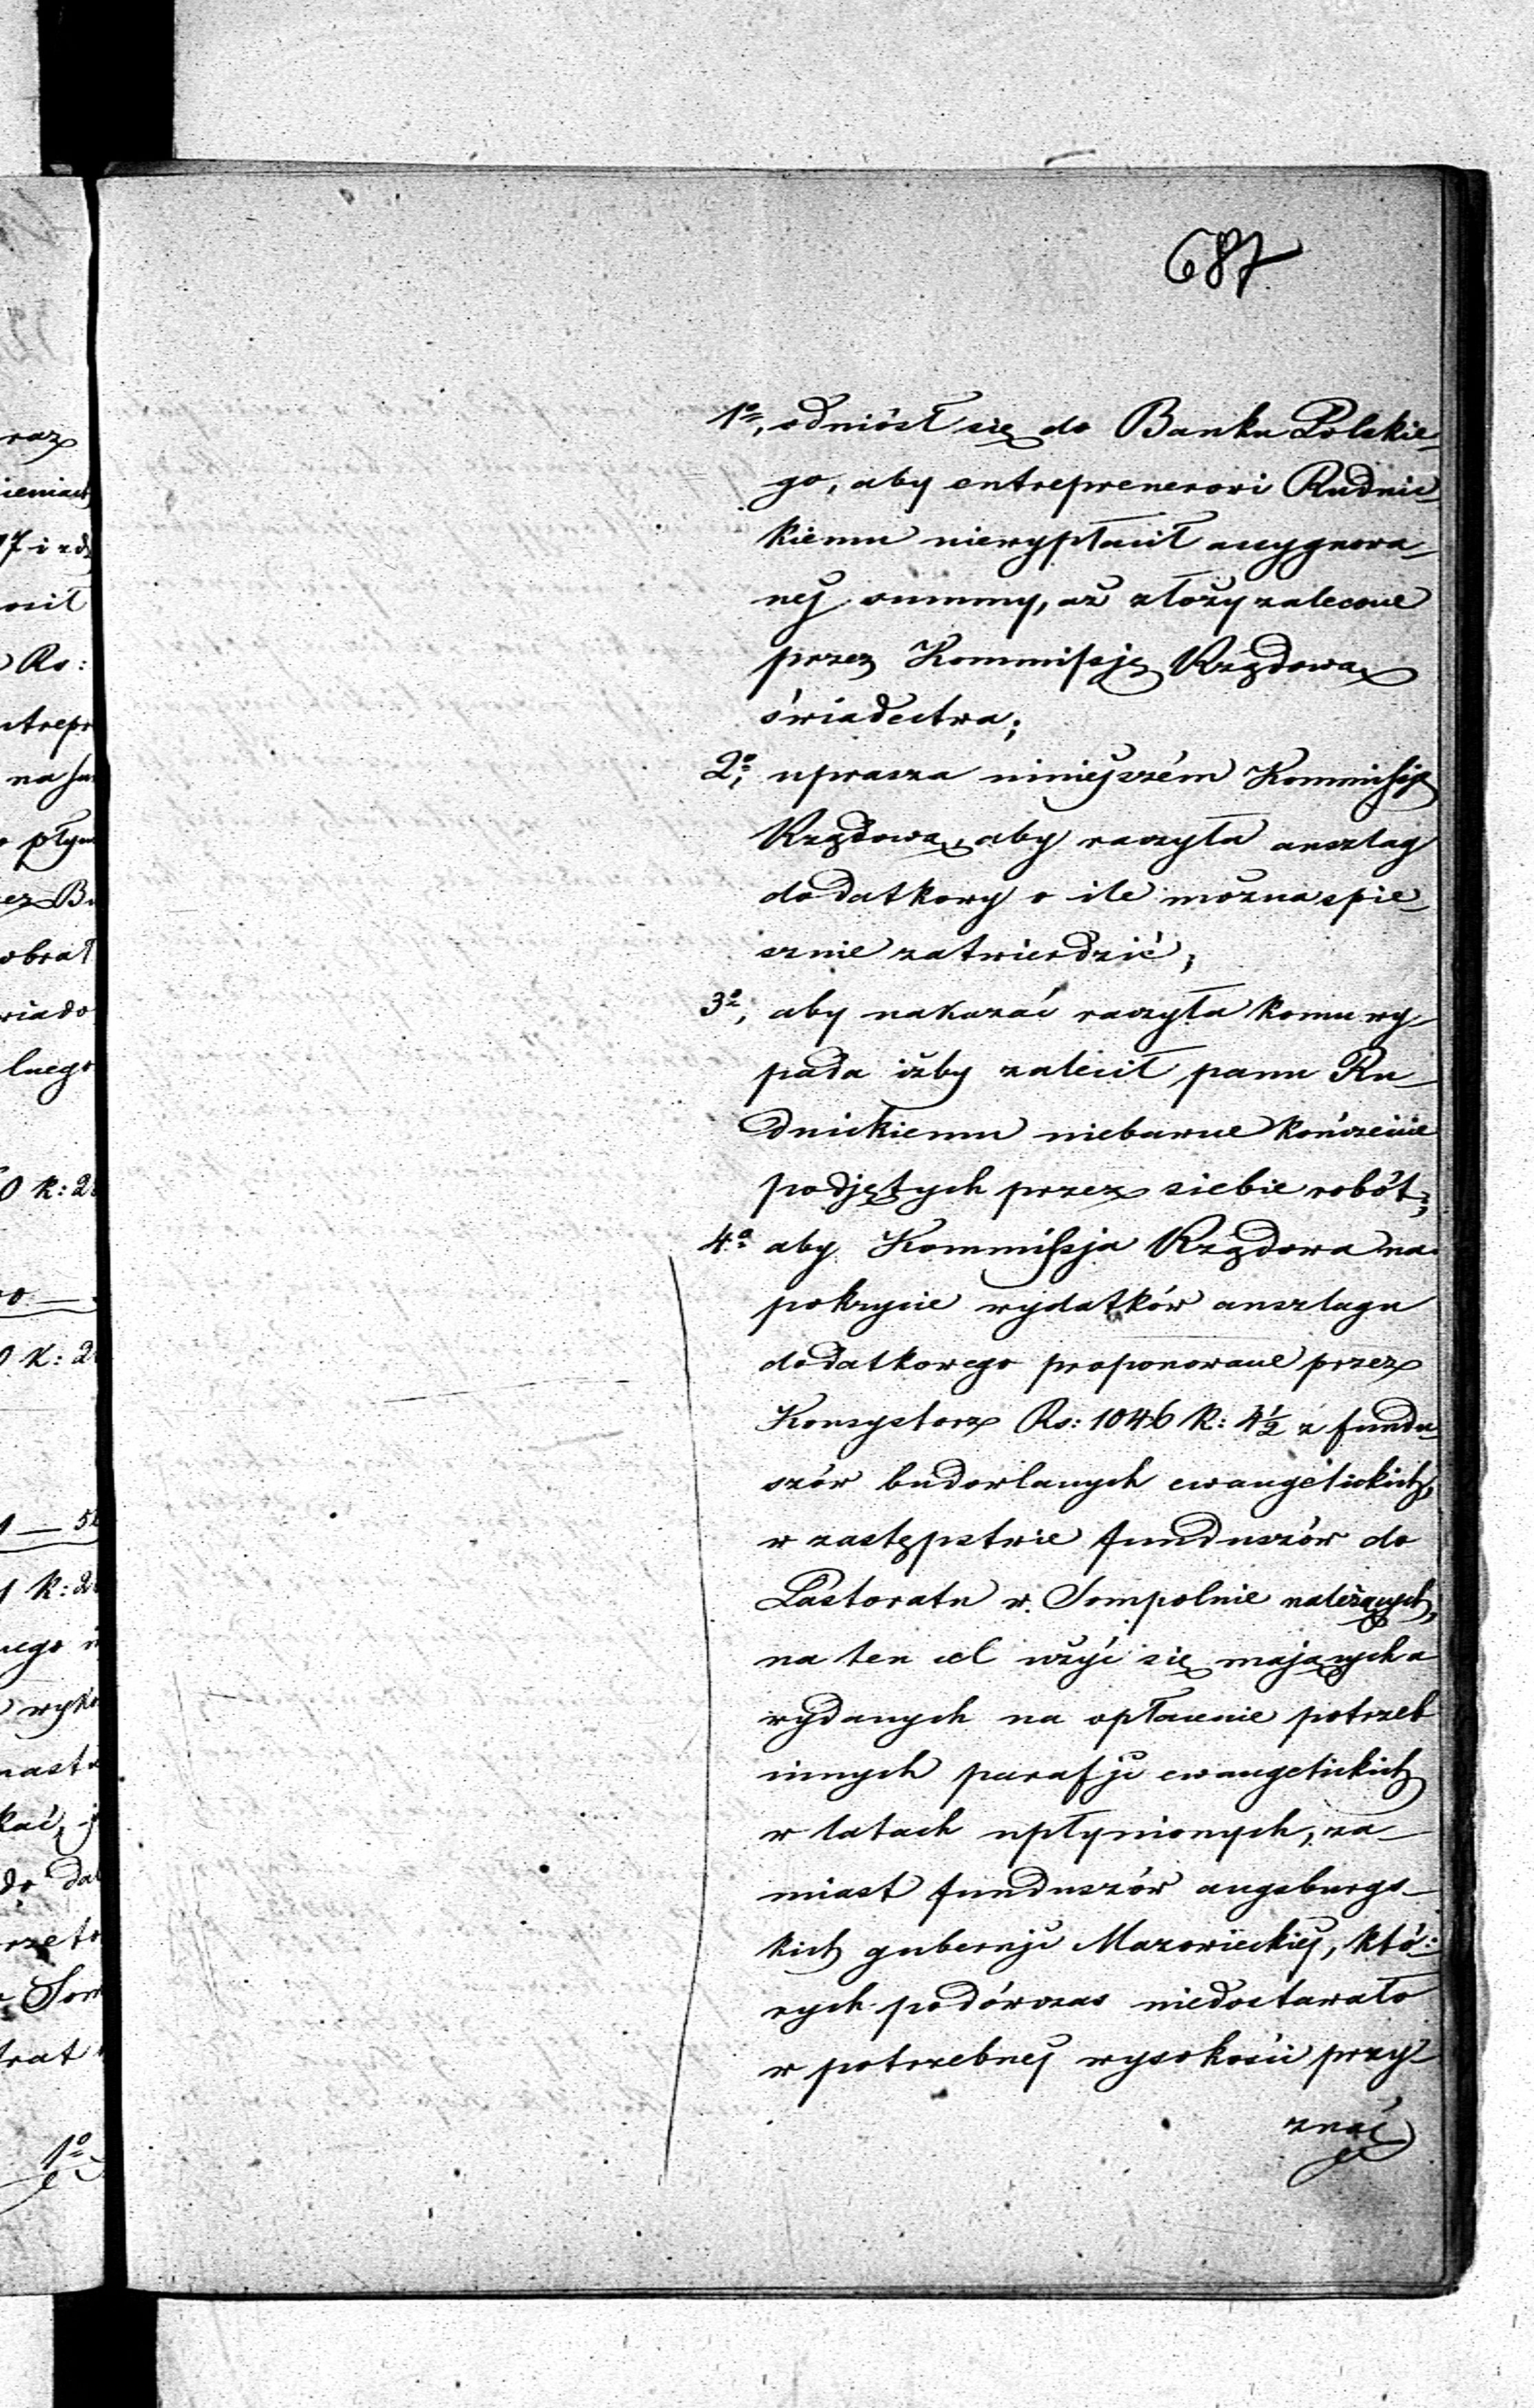 687
1º, odniósł się do Banku Polskie-
go, aby entreprenerowi Rudnic-
kiemu niewypłacił assygnowa-
néj summy, aż złoży zalecone
przez Kommissję Rządową
świadectwa;
2º, uprasza niniejszém Kommissję
Rządową, aby raczyła anszlag
dodatkowy o ile można spie-
sznie zatwierdzić;
3º, aby nakazać raczyła komu wy-
pada iżby zalecił panu Ru-
dnickiemu niebawne kończenie
podjętych przez siebie robót;
4º aby Kommissja Rządowa na
pokrycie wydatków anszlagu
dodatkowego proponowane przez
Konsystorz Rs: 1046 K: 4½ z fundu-
szów budowlanych ewangelickich,
w zastępstwie funduszów do
Pastoratu w Sompolnie należących,
na ten cel użyć się mających a
wydanych na opłacenie potrzeb
innych parafji ewangelickich
w latach upłynionych, za-
miast funduszów augsburgs-
kich gubernji Mazowieckiéj, któ-
rych podówczas niedostawało
w potrzebnéj wysokości przy-
znać
raz
ieniach
7 i zd
osił
Rs:
ntrepr
na
płyn
ez Ba
obrał
wiado
lnego
0 K: 2
0 K: 2
1 — 5
1 K: 2
nego
wyko
nast
kać, j
do dal
rzeto
Som
trat
1º